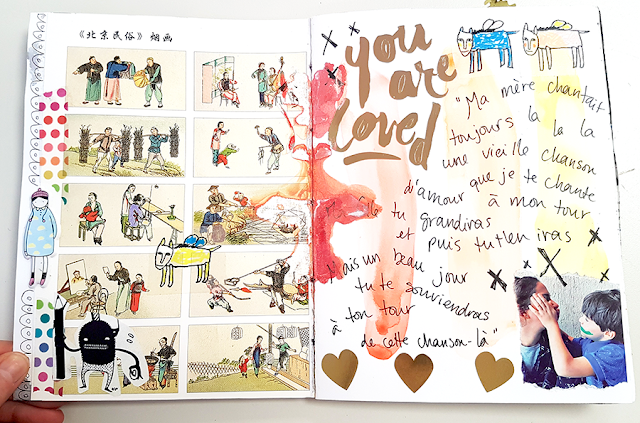 《北京民俗》烟画
you
are
loved
"Ma mère chantait
toujours la la la
une vieille chanson
d'amour que je te chante
à mon tour
tu grandiras
et puis tu t'en iras
Mais un beau jour
tu te souviendras
à ton tour
de cette chanson-là"